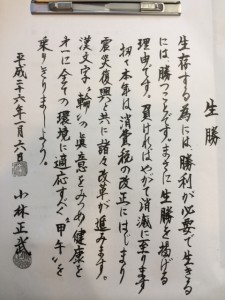 生勝
生存する為には勝利が必要で生きる
には勝つことです。まさに生勝を揚げる
理由です。負ければやがて消滅に至ります
扨々本年は消費税の改正にはじまり
震災復興と共に諸々改革が進みます。
漢文字"輪"の真意をみつめ健康を
才一に今その環境に適応すべ"甲午"を
乗りきりましょう。
平成二十六年一月六日
小林正武